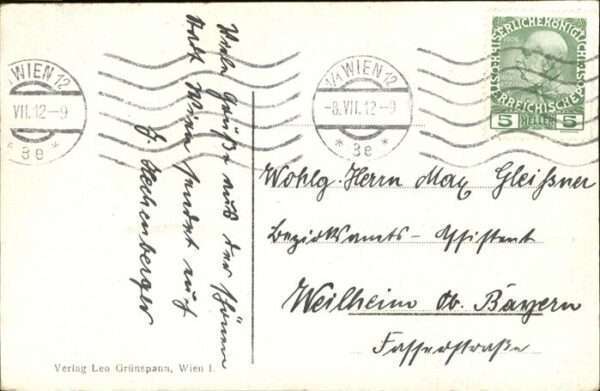 Viele Grüße aus der schönen
Stadt Wien sendet auf
J. Hechenberger
1/1 WIEN 12
-8.VII.12-9
* 3e *
WIEN 12
VII.12-9
3e *
KAISERLICHEKÖNIGLICHE
ÖSTERREICHISCHE
5 HELLER 5
Wohlg. Herrn Max Gleißner
Bezirksamts-Assistent
Weilheim Ob. Bayern
Verlag Leo Grünspann, Wien I.